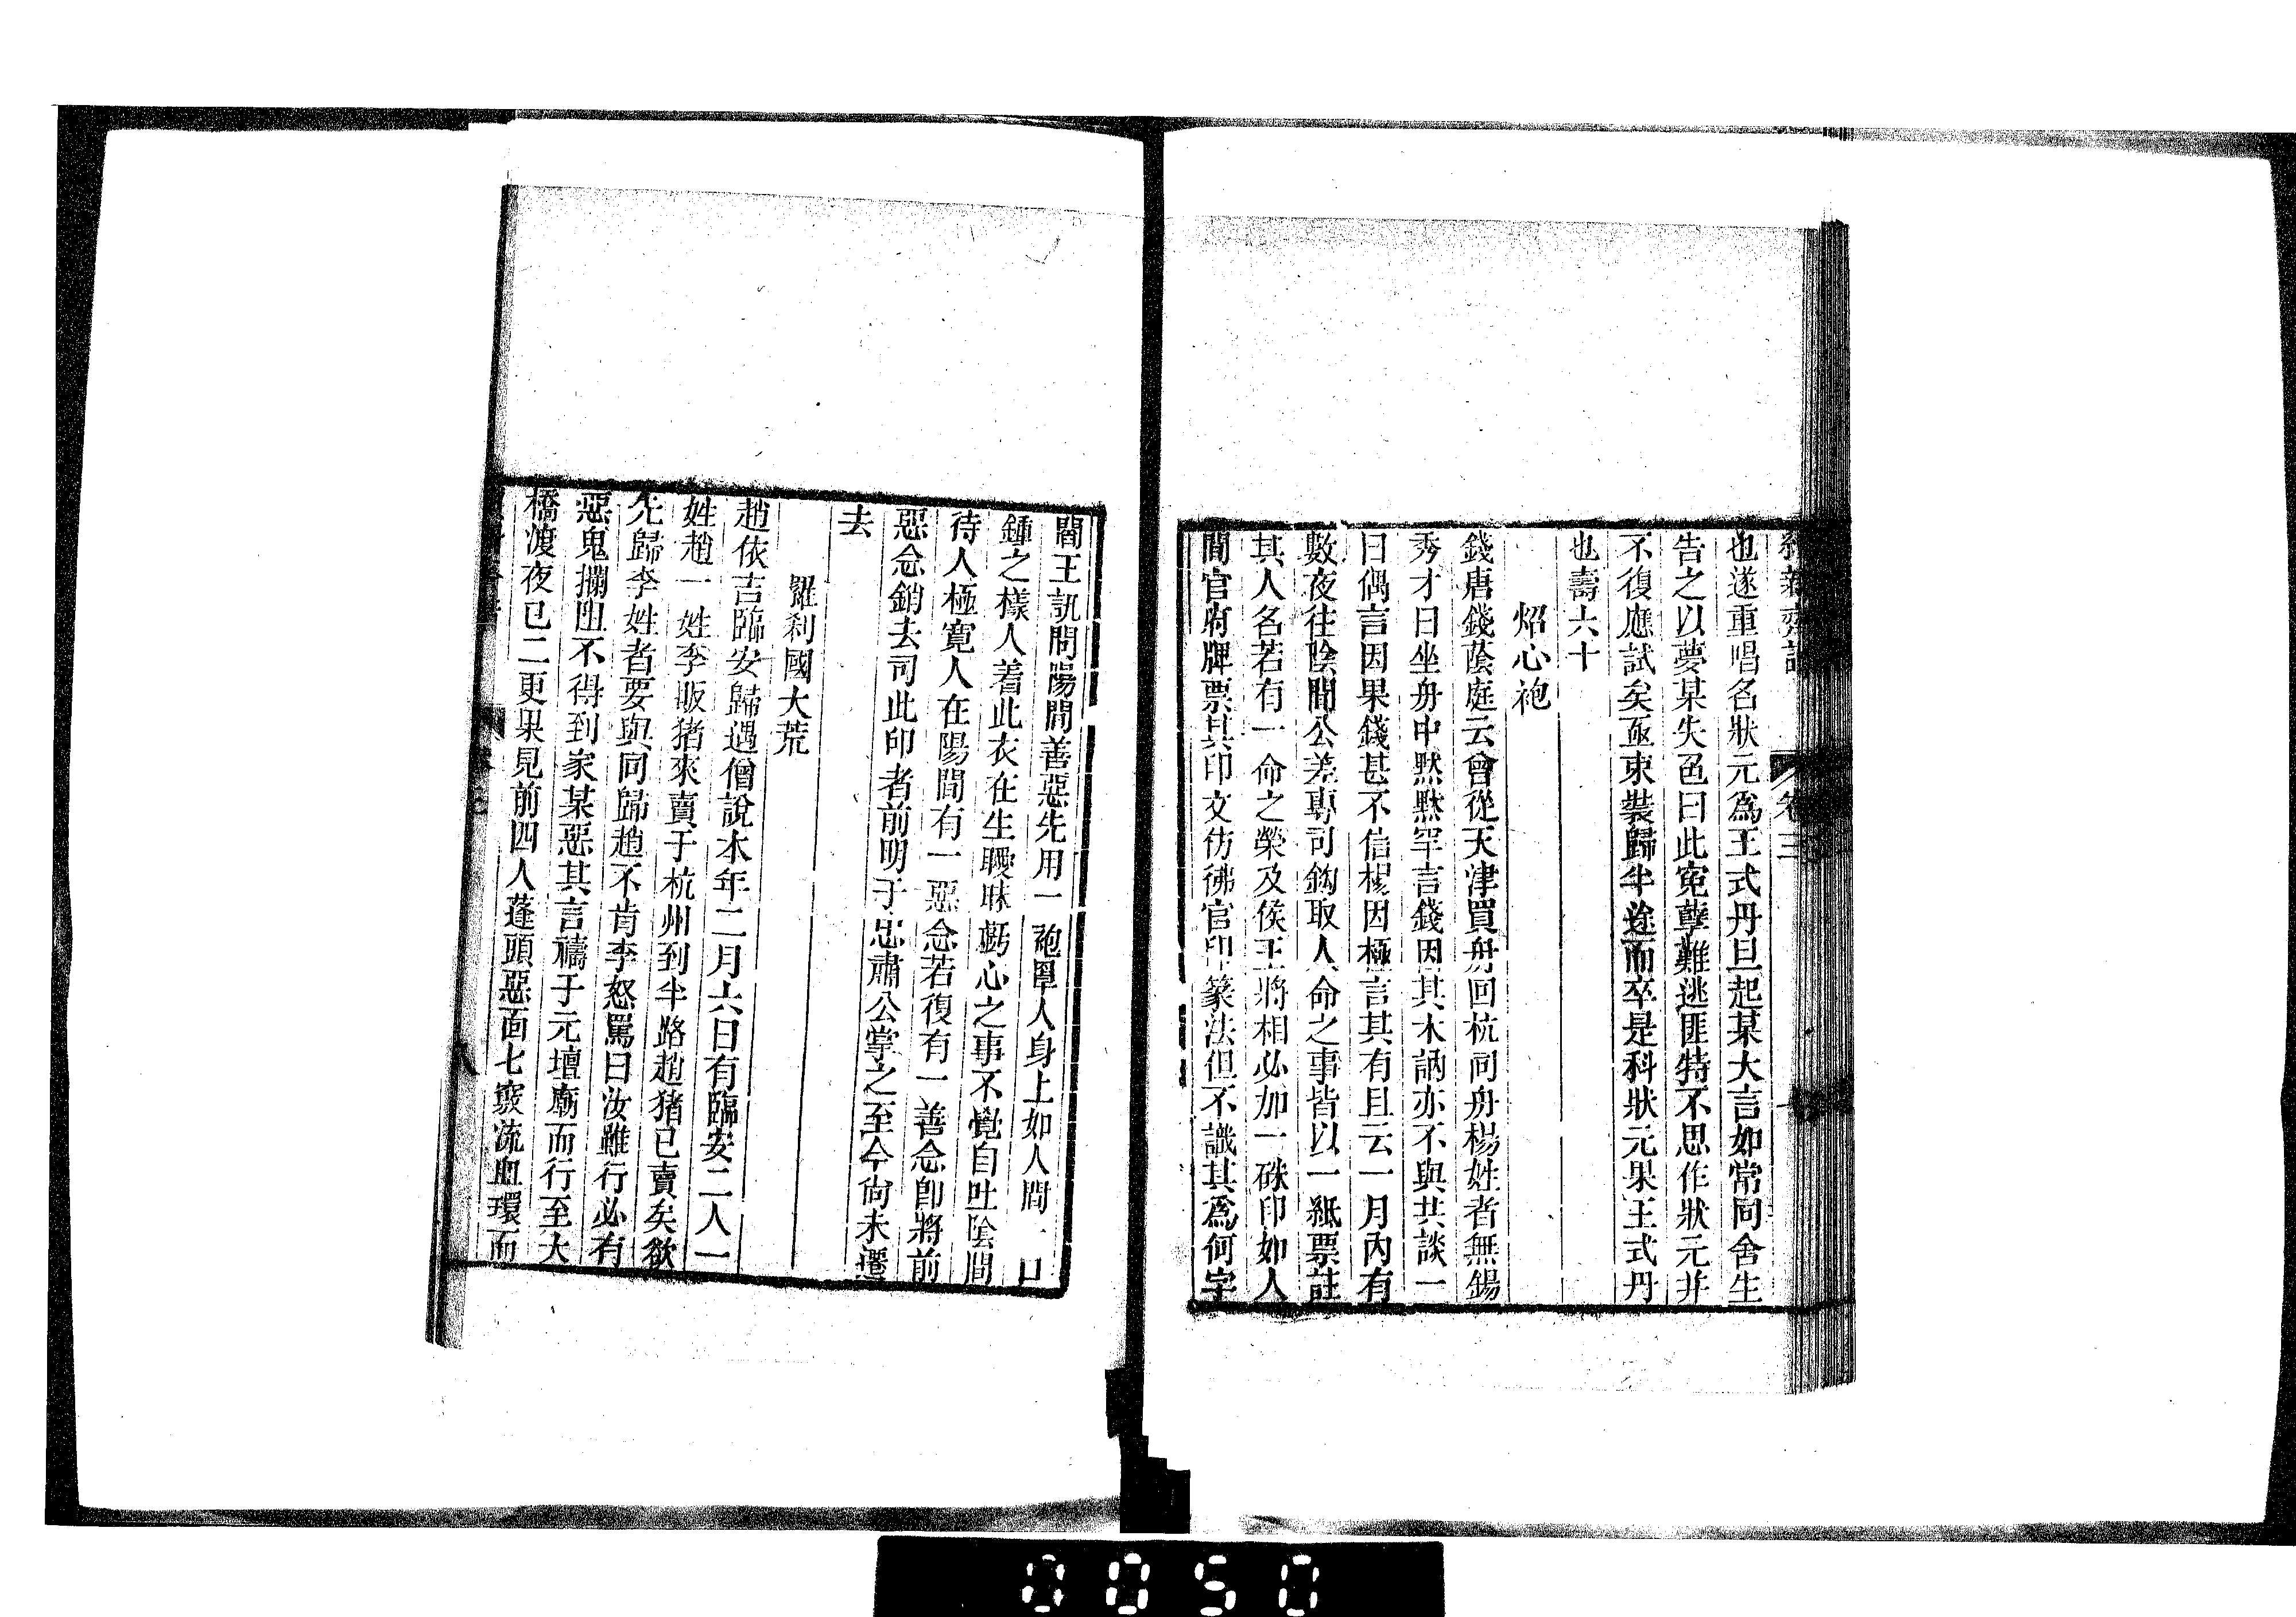 續新齊諧 卷三
也遂重唱名狀元爲王式丹旦起某大言如常同舍生
告之以夢某失色曰此寃孽難逃匪特不思作狀元并
不復應試矣亟束裝歸半途而卒是科狀元果王式丹
也壽六十
炤心袍
錢唐錢蔭庭云曾從天津買舟回杭同舟楊姓者無錫
秀才日坐舟中默默罕言錢因其木訥亦不與共談一
日偶言因果錢甚不信楊因極言其有且云一月內有
數夜往陰間公差專司鈎取人命之事皆以一紙票註
其人名若有一命之榮及侯王將相必加一硃印如人
間官府牌票其印文彷彿官印篆法但不識其爲何字
閻王訊問陽間善惡先用一袍單人身上如人間一口
鍾之樣人着此衣在生曖昧虧心之事不覺自吐陰間
待人極寛人在陽間有一惡念若復有一善念卽將前
惡念銷去司此印者前明于忠肅公掌之至今尙未遷
去
羅刹國大荒
趙依吉臨安歸遇僧說本年二月六日有臨安二人一
姓趙一姓李販猪來賣于杭州到半路趙猪已賣矣欲
先歸李姓者要與同歸趙不肯李怒罵曰汝雖行必有
惡鬼攔阻不得到家某惡其言禱于元壇廟而行至大
橋渡夜已二更果見前四人蓬頭惡面七竅流血環而
八
0050